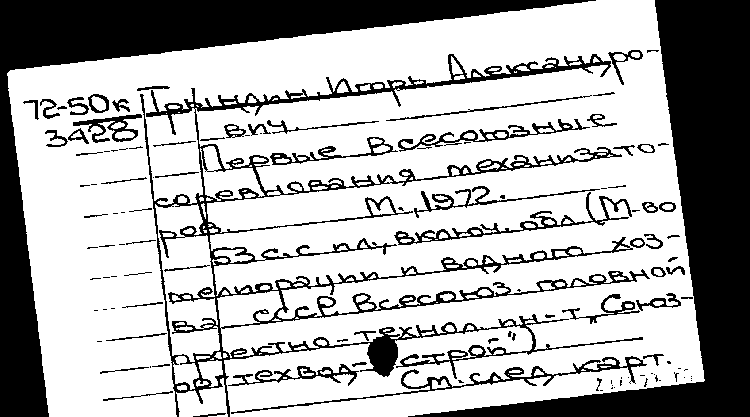 72-50к Грындин, Игорь Александро-
3428 вич.
Первые Всесоюзные
соревнования механизато-
ров. М., 1972.
53 с. с пл., включ. обл. (М-во
мелиорации и водного хоз-
ва СССР. Всесоюз. головной
проектно-технол. ин-т „Союз-
оргтехвод-строй").
См. след. карт.